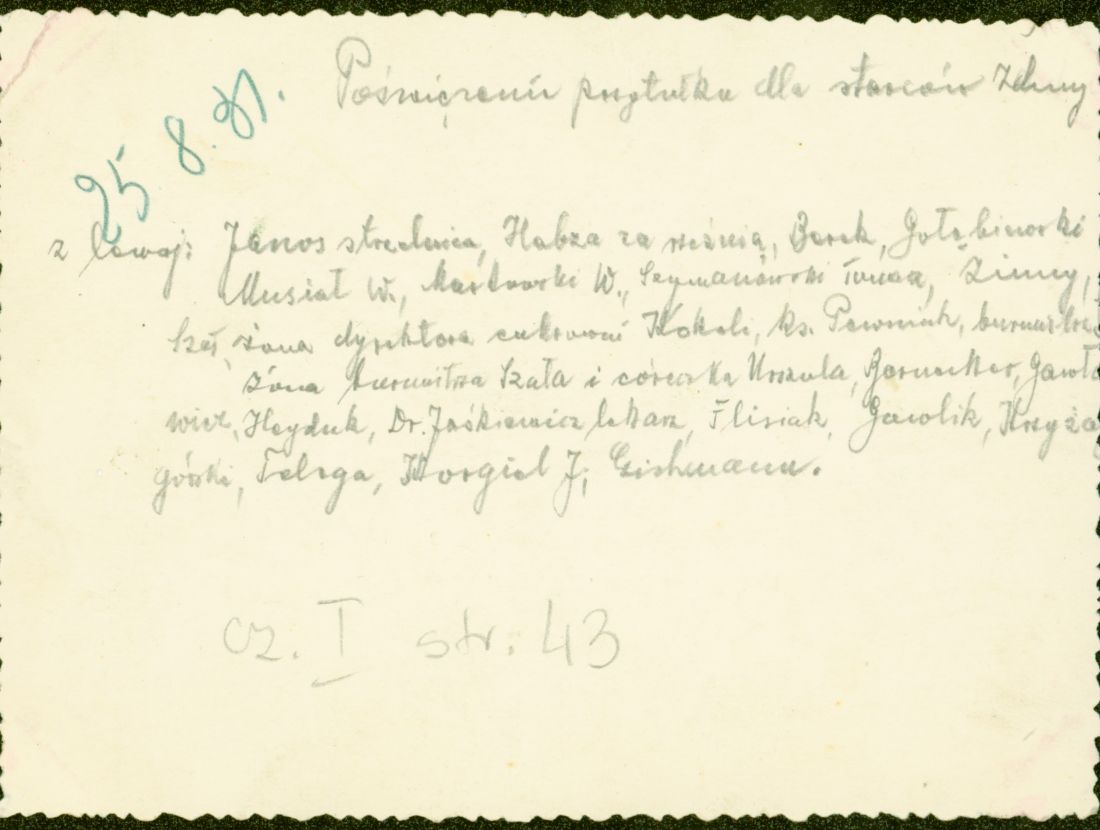 Poświęcenie przytułku dla starców Zduny
25 8. 31.
z lewej: Janos strzelnica, Habza za rzeźnią, Barek, Gołębiowski
Musiał W., Maćkowski W., Szymanowski Tomasz, Zimny,
żona dyrektora cukrowni Kokeli, ks. Pawniak,
żona burmistrza Szała i córeczka Urszula, Gawła
wicz, Heyduk, Dr. Jaśkiewicz lekarz, Flisiak, Gawlik, Krzyża
górski, Telega, Korgiel J, Eichmann.
cz. I str. 43